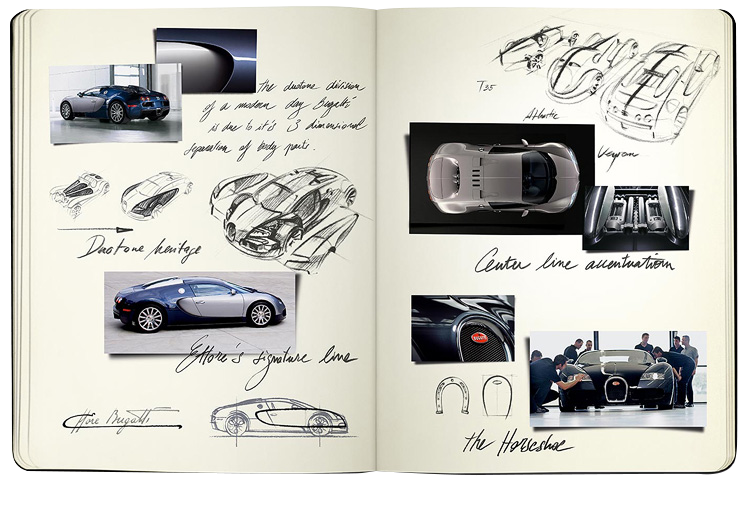 the duotone division
of a modern day Bugatti
is due to it's 3 dimensional
separation of body parts.
Duotone heritage
Ettore's signature line
Ettore Bugatti
T35
Atlantic
Veyron
Center line accentuation
the Horseshoe